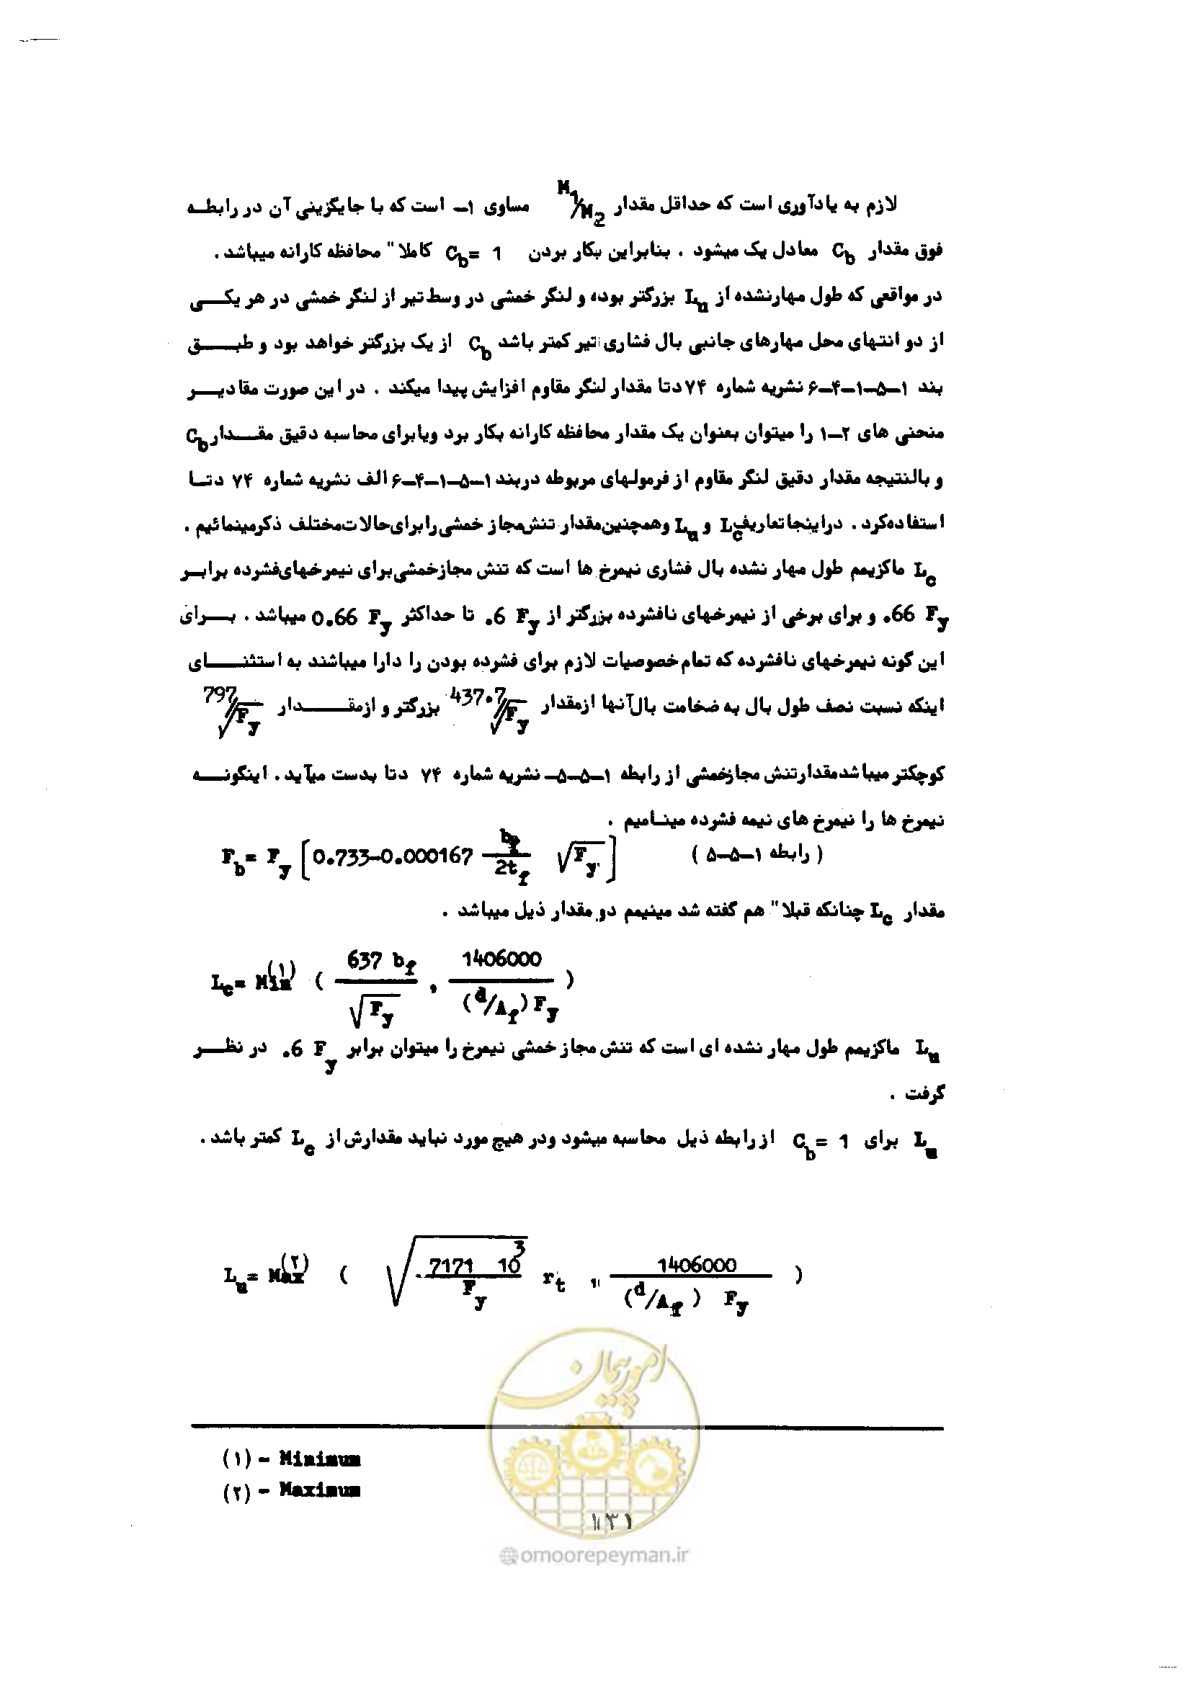 لازم به یادآوری است که حداقل مقدار M1/M2 مساوی ۱- است که با جایگزینی آن در رابطه
فوق مقدار Cb معادل یک میشود . بنابراین بکار بردن Cb= 1 کاملا" محافظه کارانه میباشد .
در مواقعی که طول مهارنشده از Lu بزرگتر بوده و لنگر خمشی در وسط تیر از لنگر خمشی در هر یکی
از دو انتهای محل مهارهای جانبی بال فشاری تیر کمتر باشد Cb از یک بزرگتر خواهد بود و طبق
بند ۱-۵-۱-۴-۶ نشریه شماره ۷۴ دتا مقدار لنگر مقاوم افزایش پیدا میکند . در این صورت مقادیر
منحنی های ۲-۱ را میتوان بعنوان یک مقدار محافظه کارانه بکار برد ویابرای محاسبه دقیق مقدار Cb
و بالنتیجه مقدار دقیق لنگر مقاوم از فرمولهای مربوطه دربند ۱-۵-۱-۴-۶ الف نشریه شماره ۷۴ دتا
استفاده کرد . دراینجا تعاریف Lc و Lu وهمچنین مقدار تنش مجاز خمشی را برای حالات مختلف ذکرمینمائیم .
Lc ماکزیمم طول مهار نشده بال فشاری نیمرخ ها است که تنش مجازخمشی برای نیمرخهای فشرده برابر
.66 Fy و برای برخی از نیمرخهای نافشرده بزرگتر از .6 Fy تا حداکثر 0.66 Fy میباشد . برای
این گونه نیمرخهای نافشرده که تمام خصوصیات لازم برای فشرده بودن را دارا میباشند به استثنای
اینکه نسبت نصف طول بال به ضخامت بال آنها ازمقدار 437.7/√Fy بزرگتر و ازمقدار 797/√Fy
کوچکتر میباشد مقدار تنش مجازخمشی از رابطه ۱-۵-۵- نشریه شماره ۷۴ دتا بدست میآید . اینگونه
نیمرخ ها را نیمرخ های نیمه فشرده مینامیم .
Fb= Fy [0.733-0.000167 bf/2tf √Fy] ( رابطه ۱-۵-۵ )
مقدار Lc چنانکه قبلا" هم گفته شد مینیمم دو مقدار ذیل میباشد .
Lc= Min(۱) ( 637 bf/√Fy , 1406000/(d/Af) Fy )
Lu ماکزیمم طول مهار نشده ای است که تنش مجاز خمشی نیمرخ را میتوان برابر .6 Fy در نظر
گرفت .
Lu برای Cb= 1 از رابطه ذیل محاسبه میشود ودر هیچ مورد نباید مقدارش از Lc کمتر باشد .
Lu= Max(۲) ( √(7171 10³/Fy) rt , 1406000/(d/Af) Fy )
(۱) - Minimum
(۲) - Maximum
امور پیمان
۱۳۱
@omoorepeyman.ir